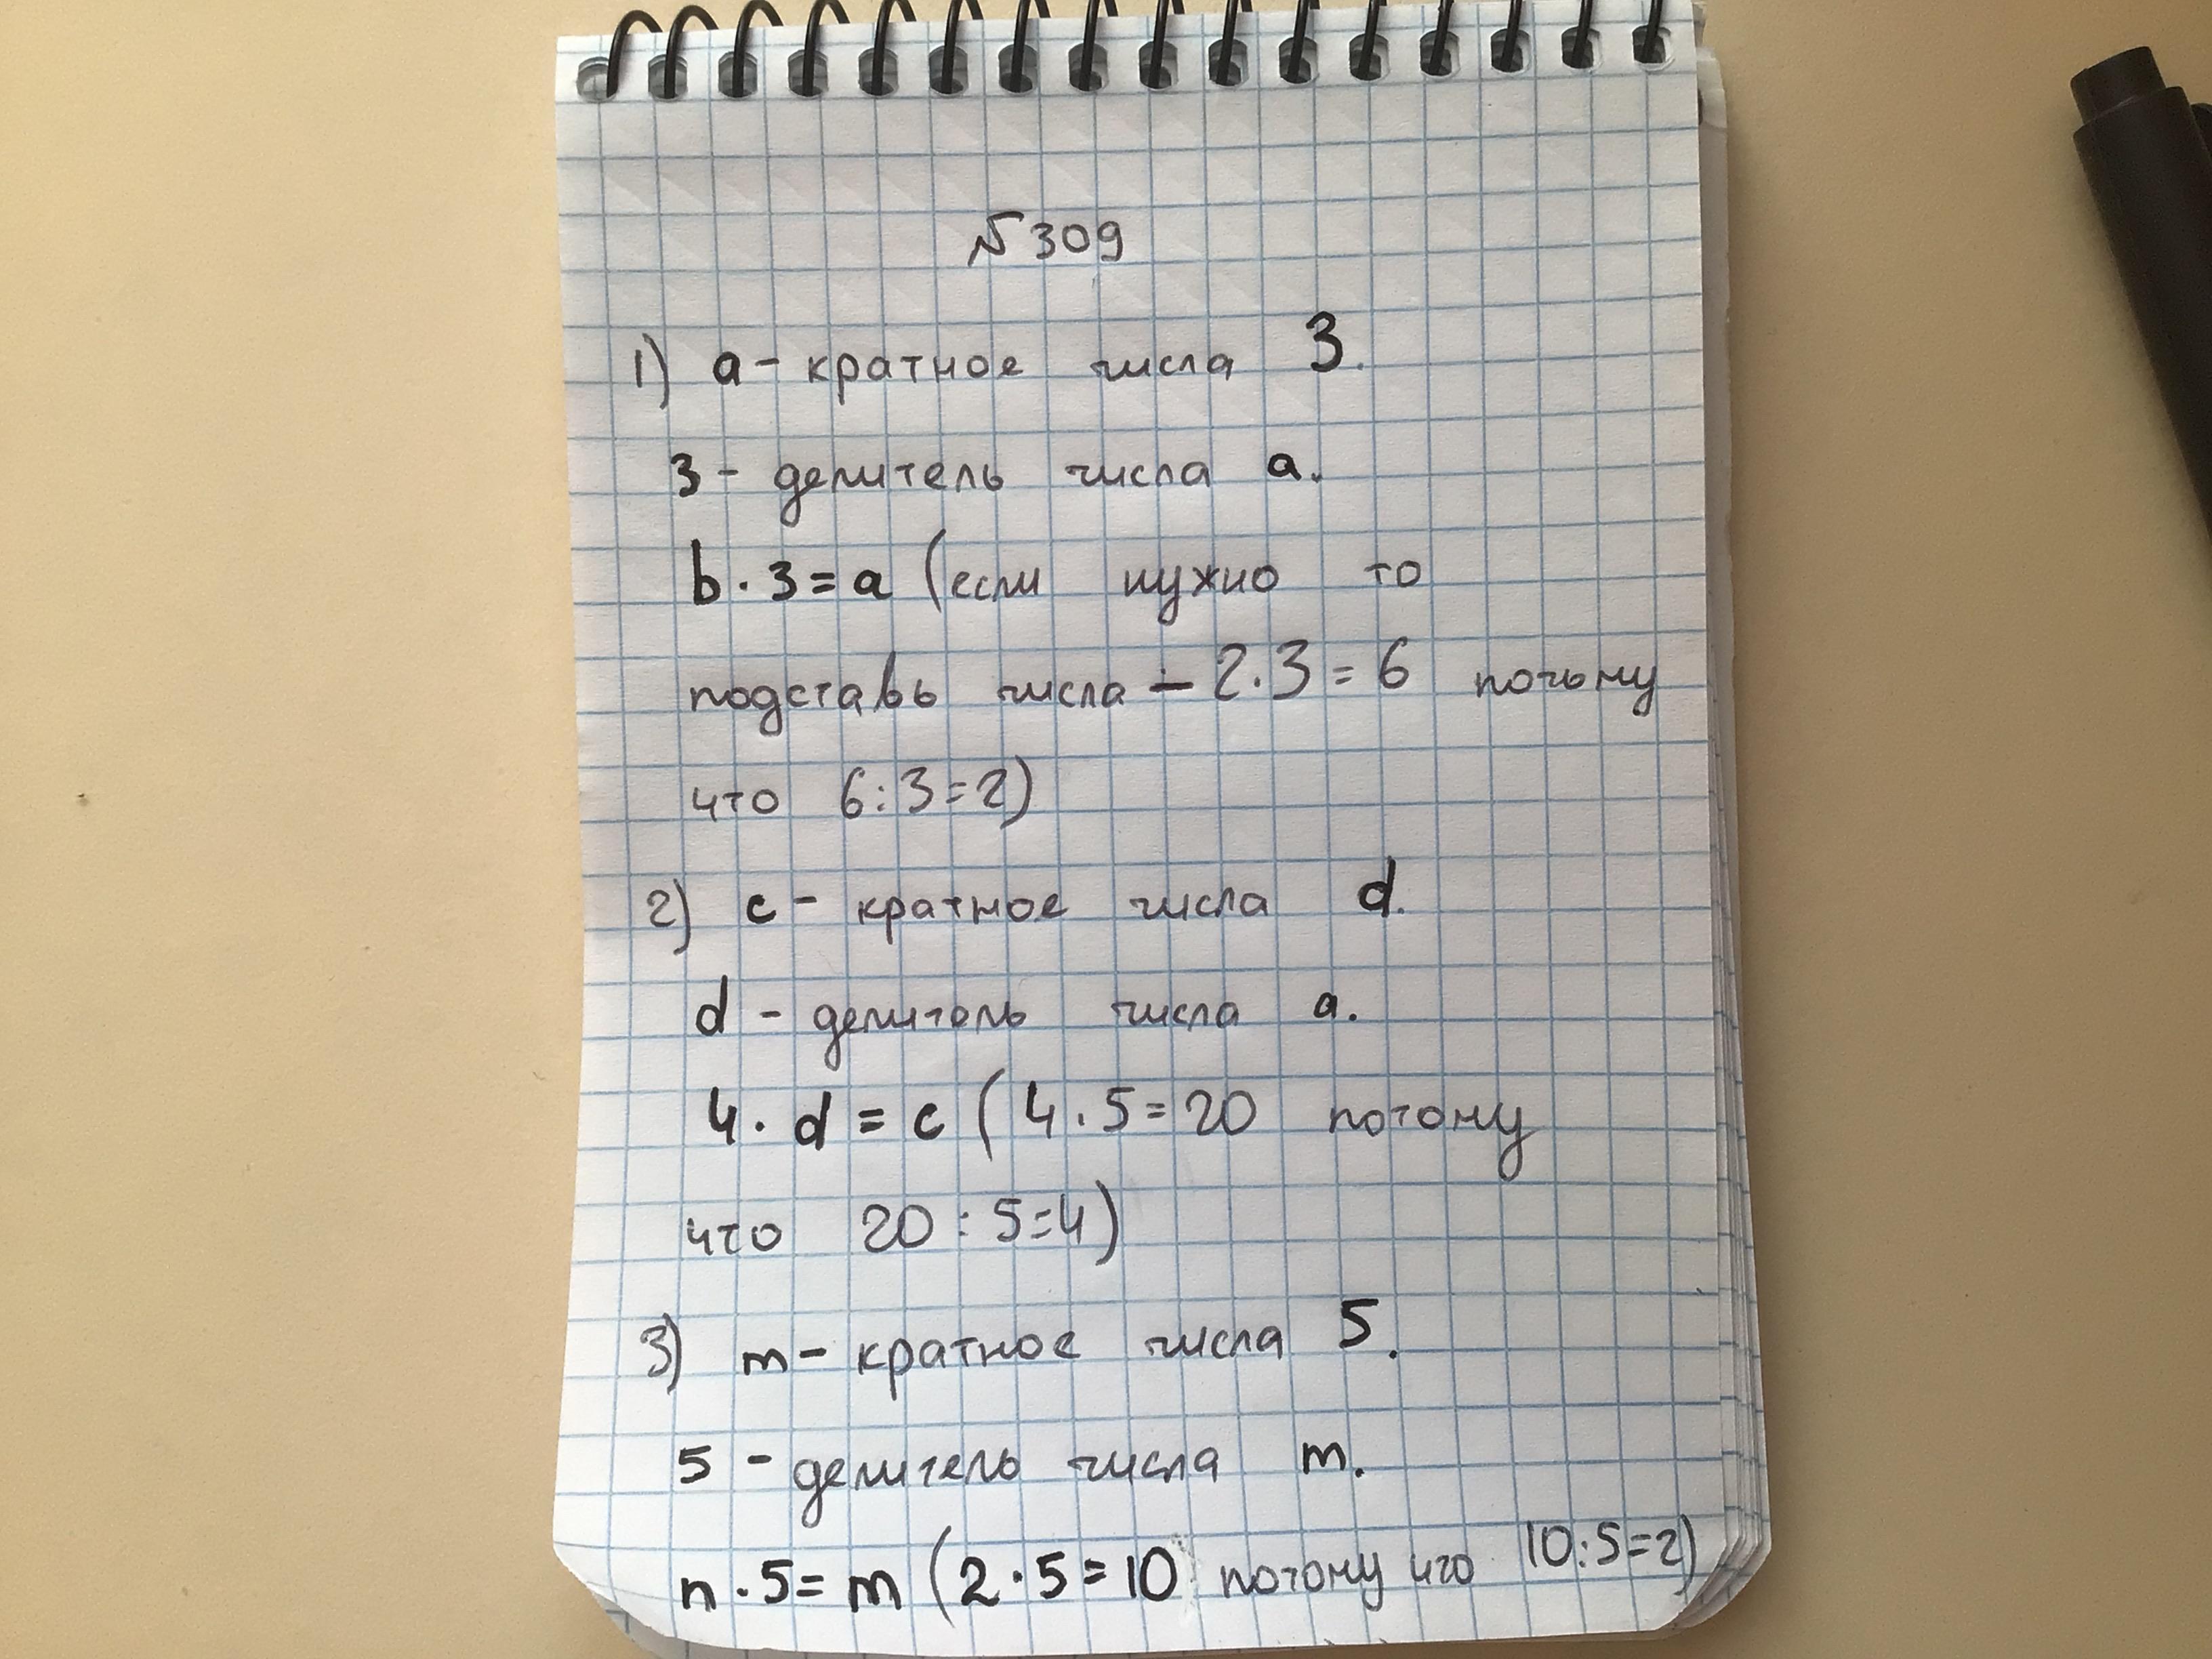 №309
1) a - кратное числа 3.
3 - делитель числа a.
b · 3 = a (если нужно то
подставь числа - 2 · 3 = 6 потому
что 6 : 3 = 2)
2) c - кратное числа d.
d - делитель числа a.
4 · d = c (4 · 5 = 20 потому
что 20 : 5 = 4)
3) m - кратное числа 5.
5 - делитель числа m.
n · 5 = m (2 · 5 = 10 потому что 10 : 5 = 2)